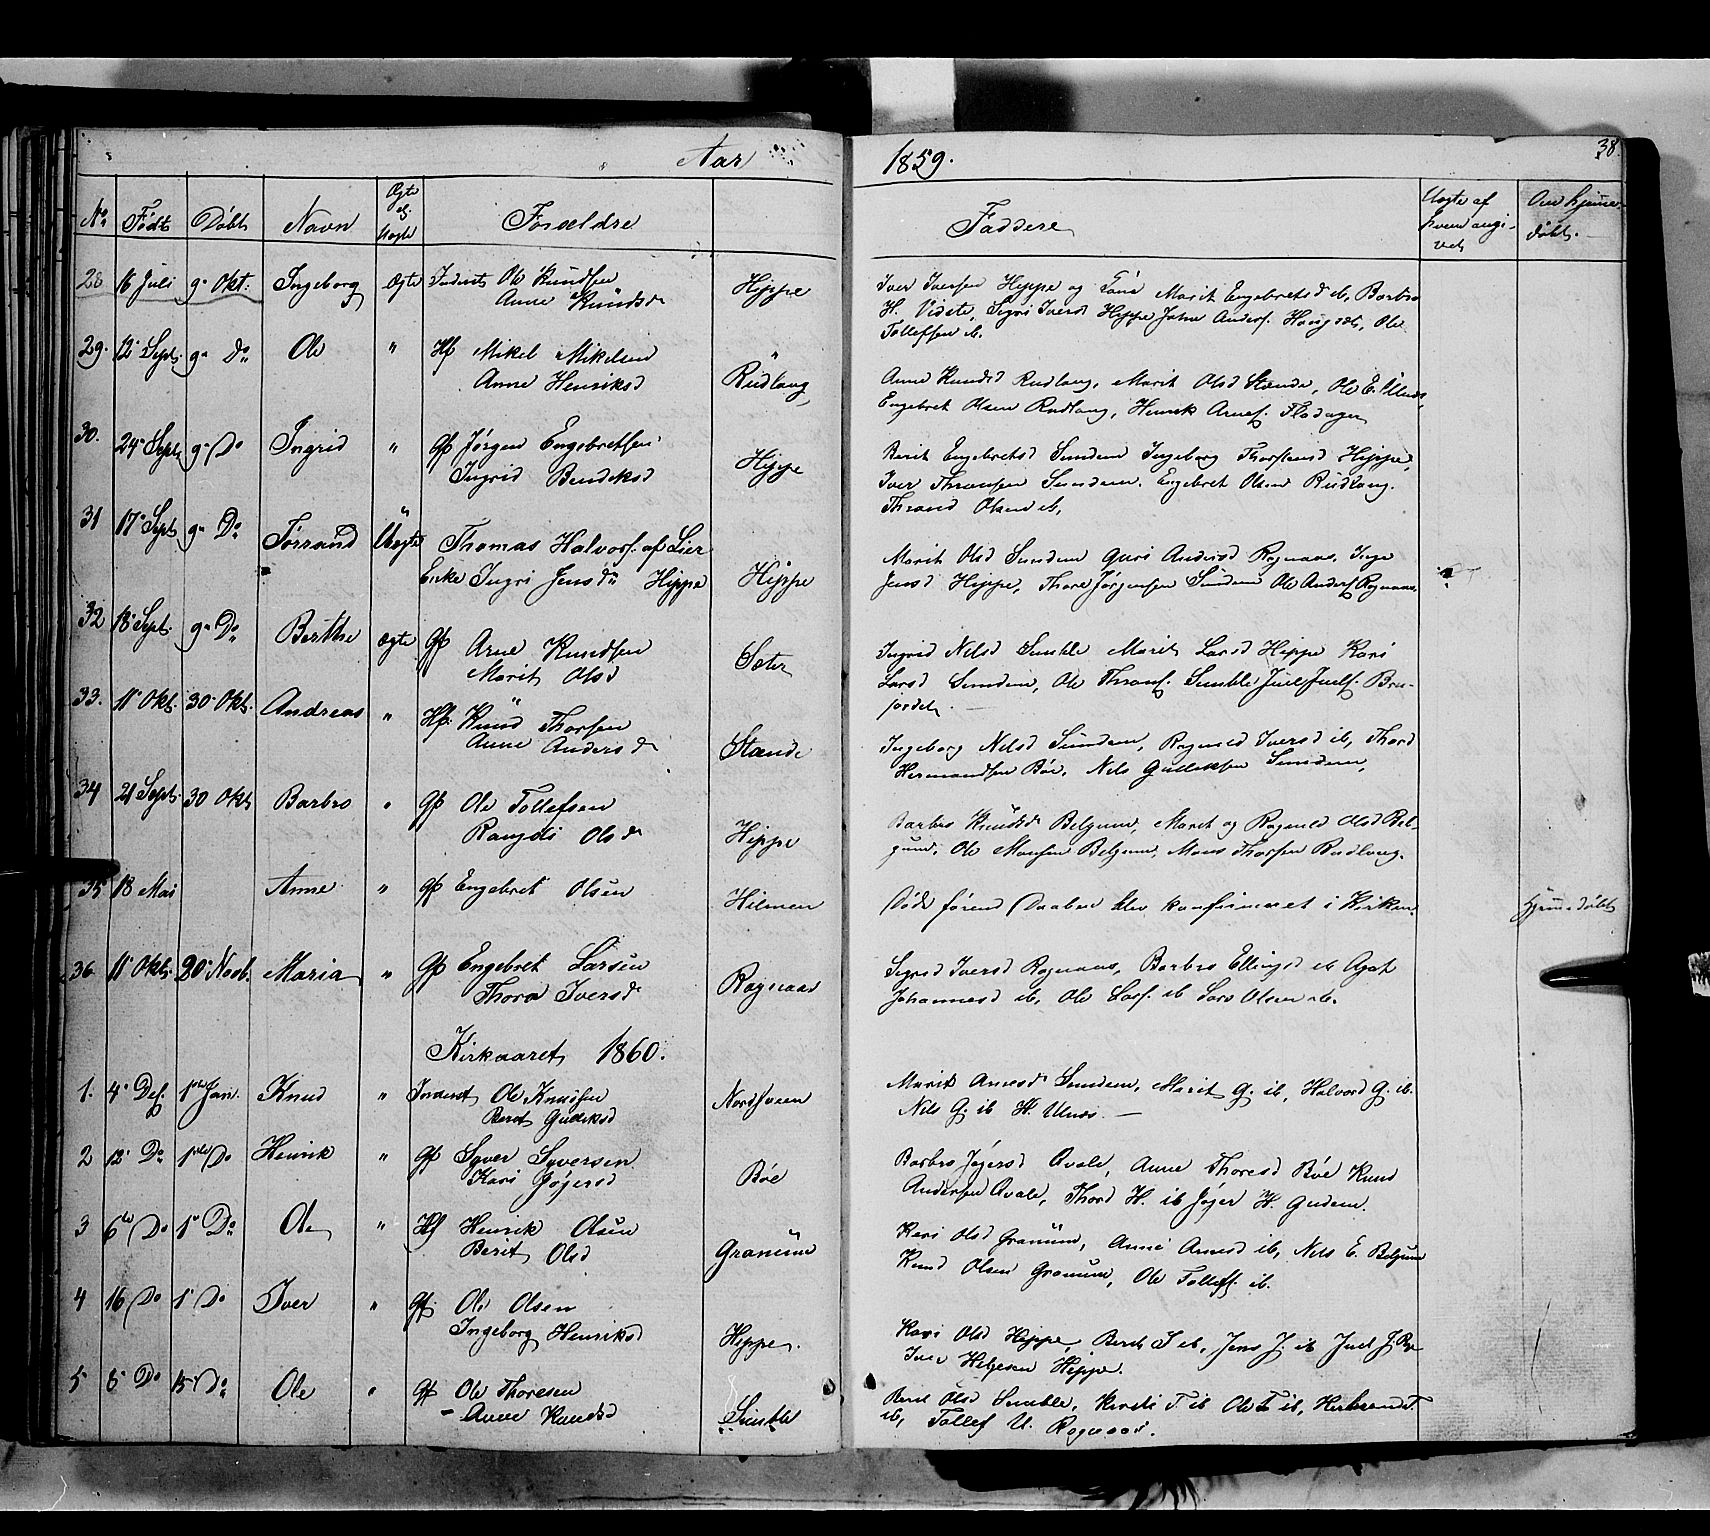 Aar 1859. 38.
No Født Døbt Navn Ægte el. Uægte Forældre Faddere Uægte af hvem angivet Om hjemmedøbt.
28 16 Juli 9 Okt: Ingeborg Ægte Inderst Ole Knudsen Hippe Iver Iversen Hippe og Marit Engebretsd ib, Barbro
Anne Knudsdr H. Sigri Iversd Hippe John Anders. Ole
Tollefsen ib.
29. 12 Sept. 9 Do Ole " Hf Mikel Mikelsen
Anne Henriksd Rudlang, Anne Knudsd Rudlang, Marit Olsd Stende, Ole E.
Engebret Olsen Rudlang, Henrik Arnes. Flodager
30. 24 Sept 9 Do Ingrid " Gf Jørgen Engebretsen Berit Engebretsd Sundem Ingeborg Thorstensd Hippe,
Ingrid Bendiksd Hippe Iver Thronsen Sundem. Engebret Olsen Rudlang.
Thrond Olsen ib,
31 17 Sept 9 Do Uægte Thomas Halvors. af Lier Marit Olsd Sundem Guri Andersd Rognaas, Inga
Enke Ingri Jensdr Hippe Hippe Jensd Hippe, Thore Jørgensen Sundem Ole Anders. Rognaas.
32 18 Sept. 9 Do Berthe ægte Gf Arne Knudsen Ingrid Nilsd Semble Marit Larsd Hippe Kari
Marit Olsd Sæter Larsd Sundem, Ole Throns. Semble Juel Juels. Bru-
fordet. —
33. 11 Okt. 30 Okt. Andreas " Hf. Knud Thorsen Ingeborg Nilsd Sundem, Ragnild Iversd ib, Thord
Anne Andersdr Stende Hermandsen Bøe, Nils Gulleksen Sundem,
34 21 Sept. 30 Okt Barbro " Gf Ole Tollefsen Barbro Knudsdr Belgum, Marit og Ragnild Olsd Bel-
Rangdi Olsdr Hippe gum, Ole Monsen Belgum, Mons Thorsen Rudlang.
35 18 Mai Anne " Gf Engebret Olsen Hilmen Døde førend Daaben blev konfirmeret i Kirken. Hjemmedøbt
36 11 Okt. 20 Novb. Maria " Gf Engebret Larsen Sigrid Iversd Rognaas, Barbro Ellingsd ib Agat
Thora Iversdr Rognaas Johannesd ib, Ole Lars. ib Lars Olsen ib.
Kirkeaaret 1860.
1. 4 Des. 1ste Jan. Knud " Inderst Ole Knudsen Marit Arnesdr Sundem, Marit G. ib, Halvord G. ib.
Berit Gudiksd Nordsveen Nils G. ib H. Ulnæs. —
2 12 Do 1ste Do Henrik " Gf Syver Syversen Barbro Jøgersd Qvale, Anne Thoresd Bøe Knud
Kari Jøgersd Bøe Andersen Qvale, Thord H. ib Jøger H. Gudem.
3 6te Do 1 Do Ole " Hf Henrik Olsen Kari Olsd Granum, Anne Arnesd ib, Nils E. Belgum
Berit Olsd Granum Knud Olsen Granum, Ole Tollefs. ib.
4 16 Do 1 Do Iver " Gf. Ole Olsen Kari Olsd Hippe, Berit T ib, Jens J. ib Juel J.
Ingeborg Henriksd Hippe. Iver Helgesen Hippe.
5 8 Do 15 Do Ole " Gf Ole Thoresen Berit Olsd Semble, Kersti T ib Ole T ib, T
- Anne Knudsd Semble ib, Tollef U. Rognaas.